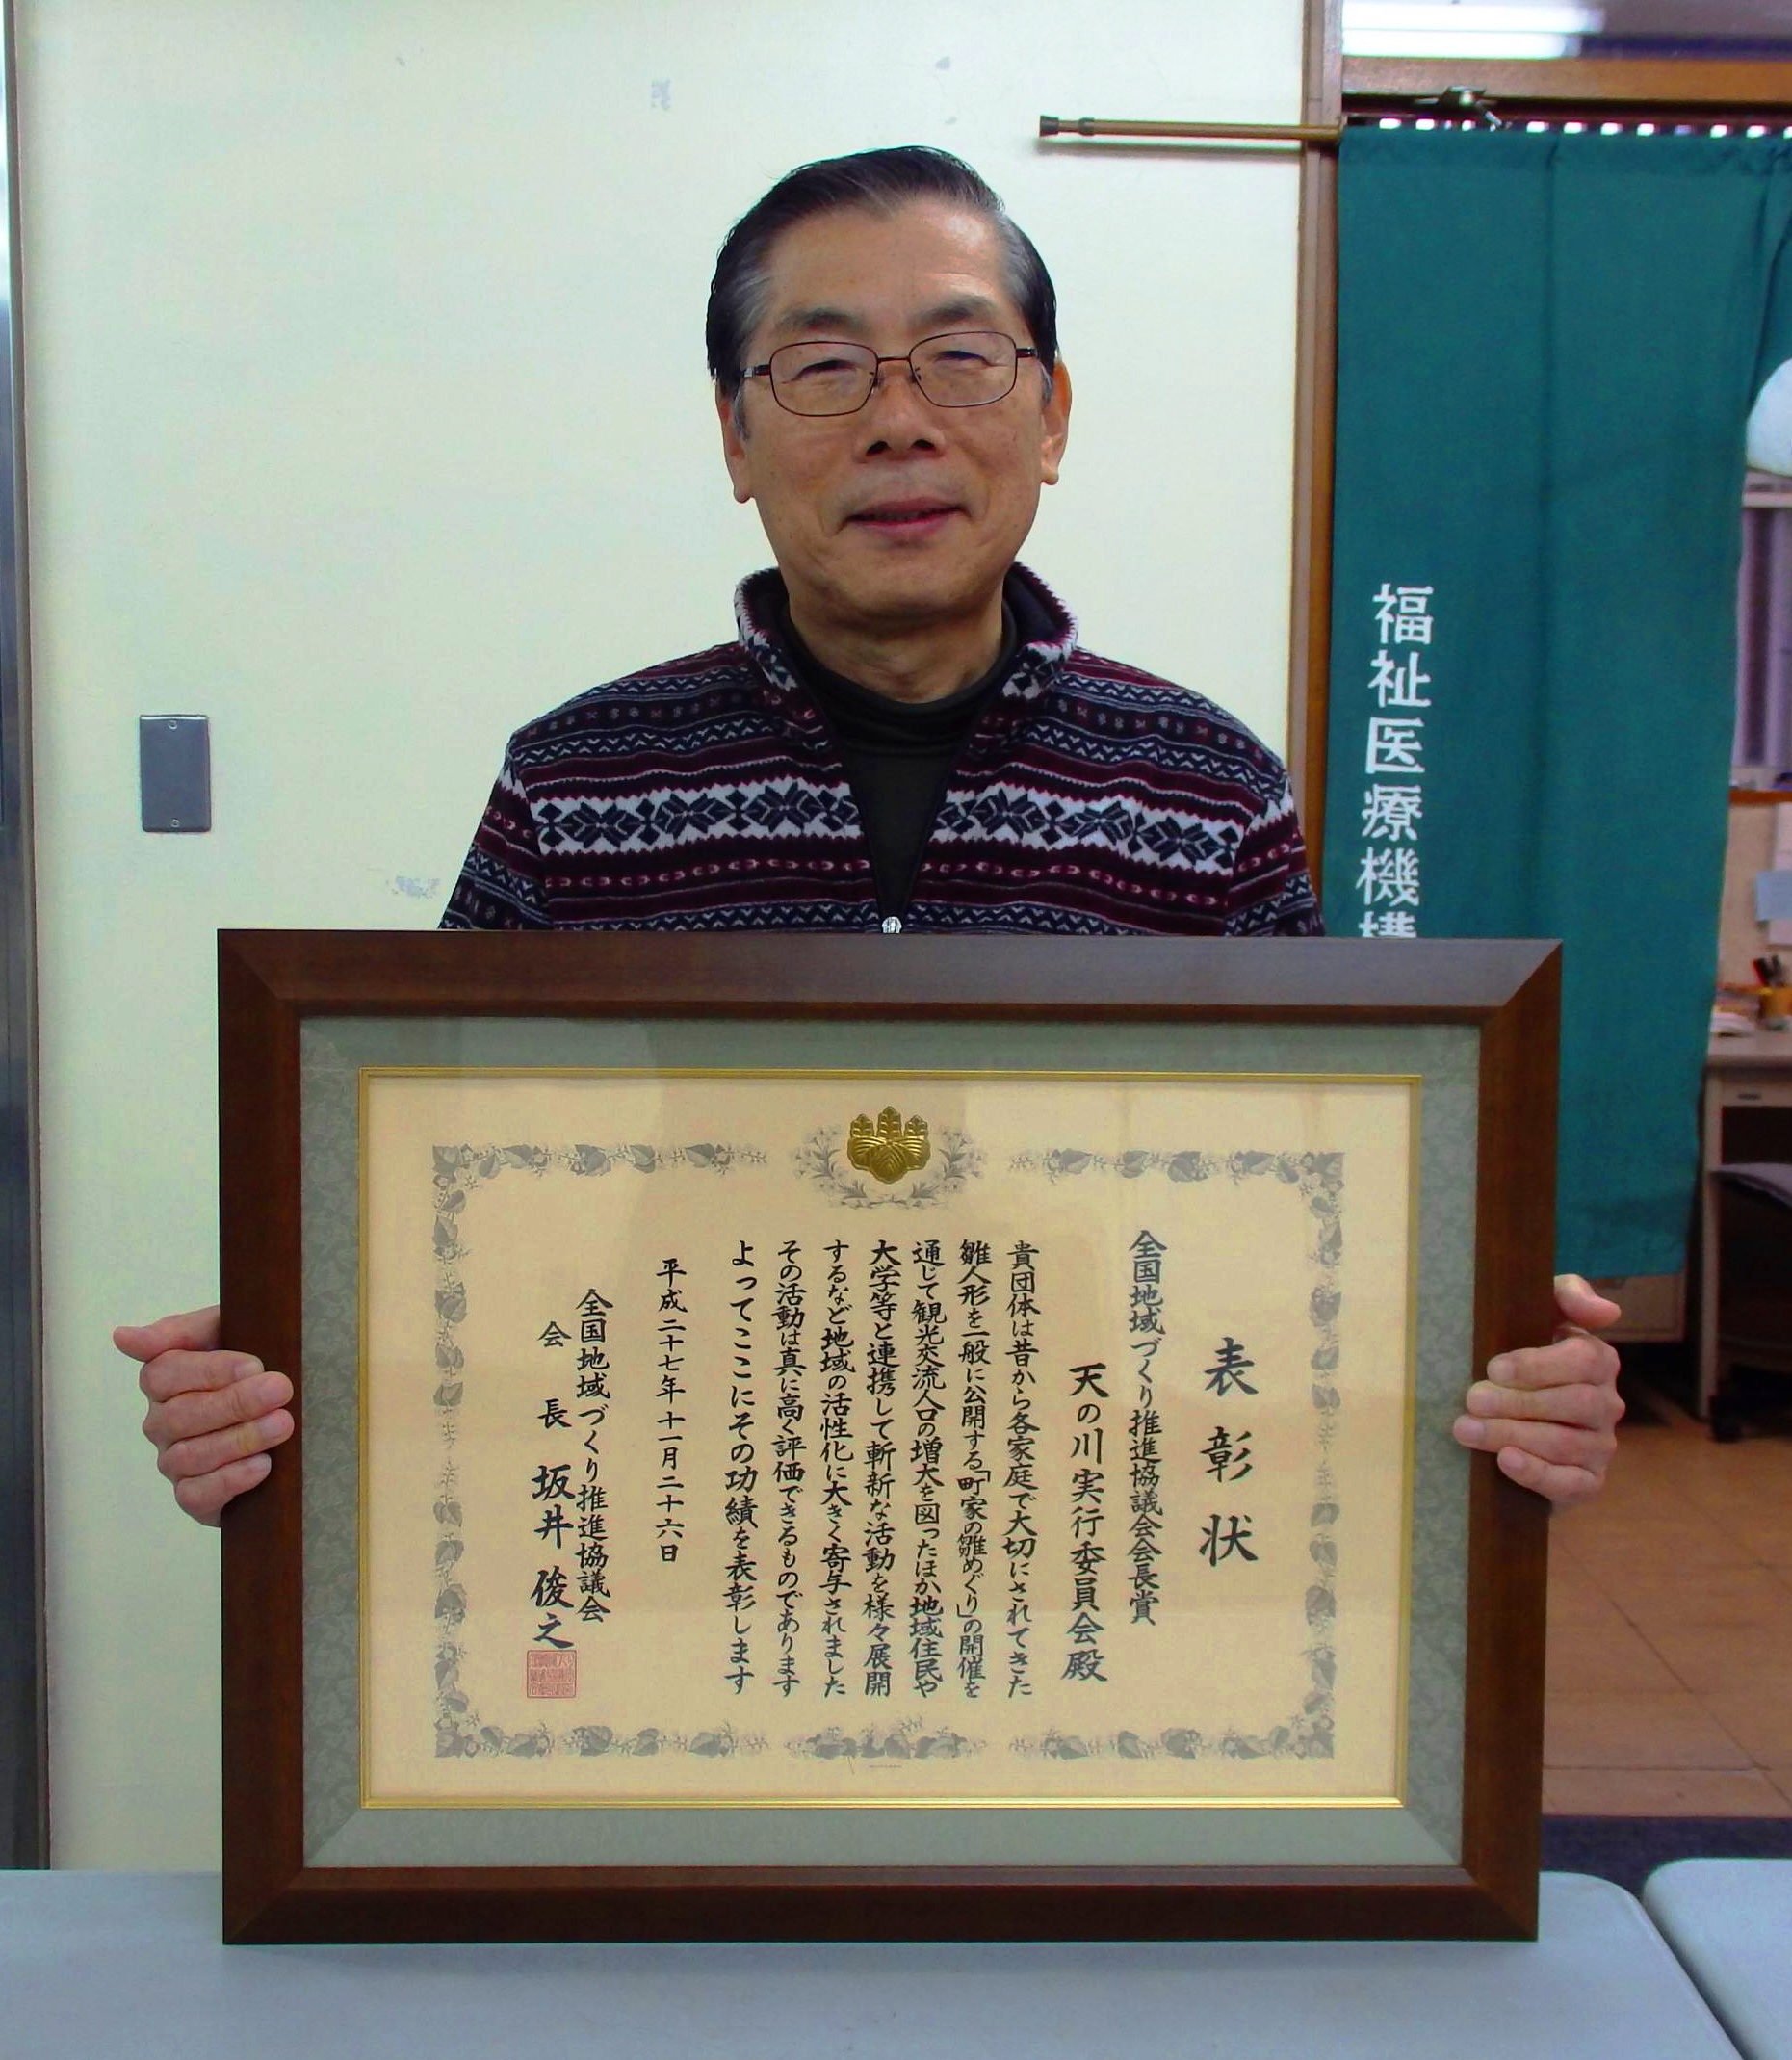 福祉医療機構
表彰状
全国地域づくり推進協議会会長賞
天の川実行委員会殿
貴団体は昔から各家庭で大切にされてきた
雛人形を一般に公開する「町家の雛めぐり」の開催を
通じて観光交流人口の増大を図ったほか地域住民や
大学等と連携して斬新な活動を様々展開
するなど地域の活性化に大きく寄与されました
その活動は真に高く評価できるものであります
よってここにその功績を表彰します
平成二十七年十一月二十六日
全国地域づくり推進協議会
会長 坂井俊之